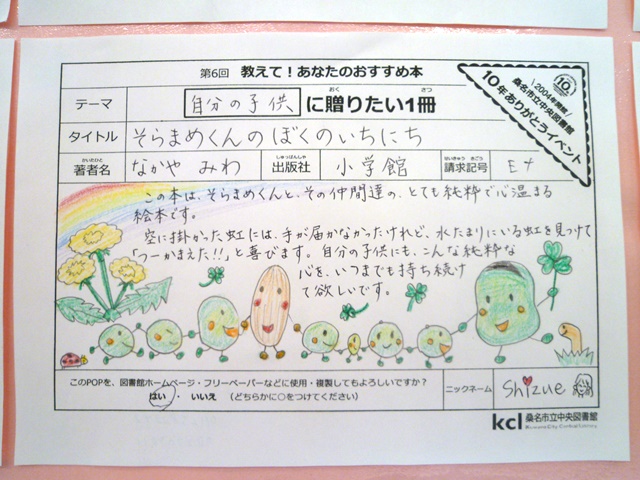 第6回 教えて！あなたのおすすめ本
＼2004年開館／
桑名市立中央図書館
10年ありがとうイベント
テーマ 自分の子供 に贈りたい1冊
おく さつ
タイトル そらまめくんのぼくのいちにち
著者名 なかや みわ 出版社 小学館 請求記号 Eナ
かいたひと しゅっぱんしゃ せいきゅう きごう
この本は、そらまめくんと、その仲間達の、とても純粋で心温まる
絵本です。
空に掛かった虹には、手が届かなかったけれど、水たまりにいる虹を見つけて
「つーかまえた!!」と喜びます。自分の子供にも、こんな純粋な
心を、いつまでも持ち続け
て欲しいです。
このPOPを、図書館ホームページ・フリーペーパーなどに使用・複製してもよろしいですか？
はい ・ いいえ （どちらかに○をつけてください）
ニックネーム shizue
kcl 桑名市立中央図書館
Kuwana City Central Library